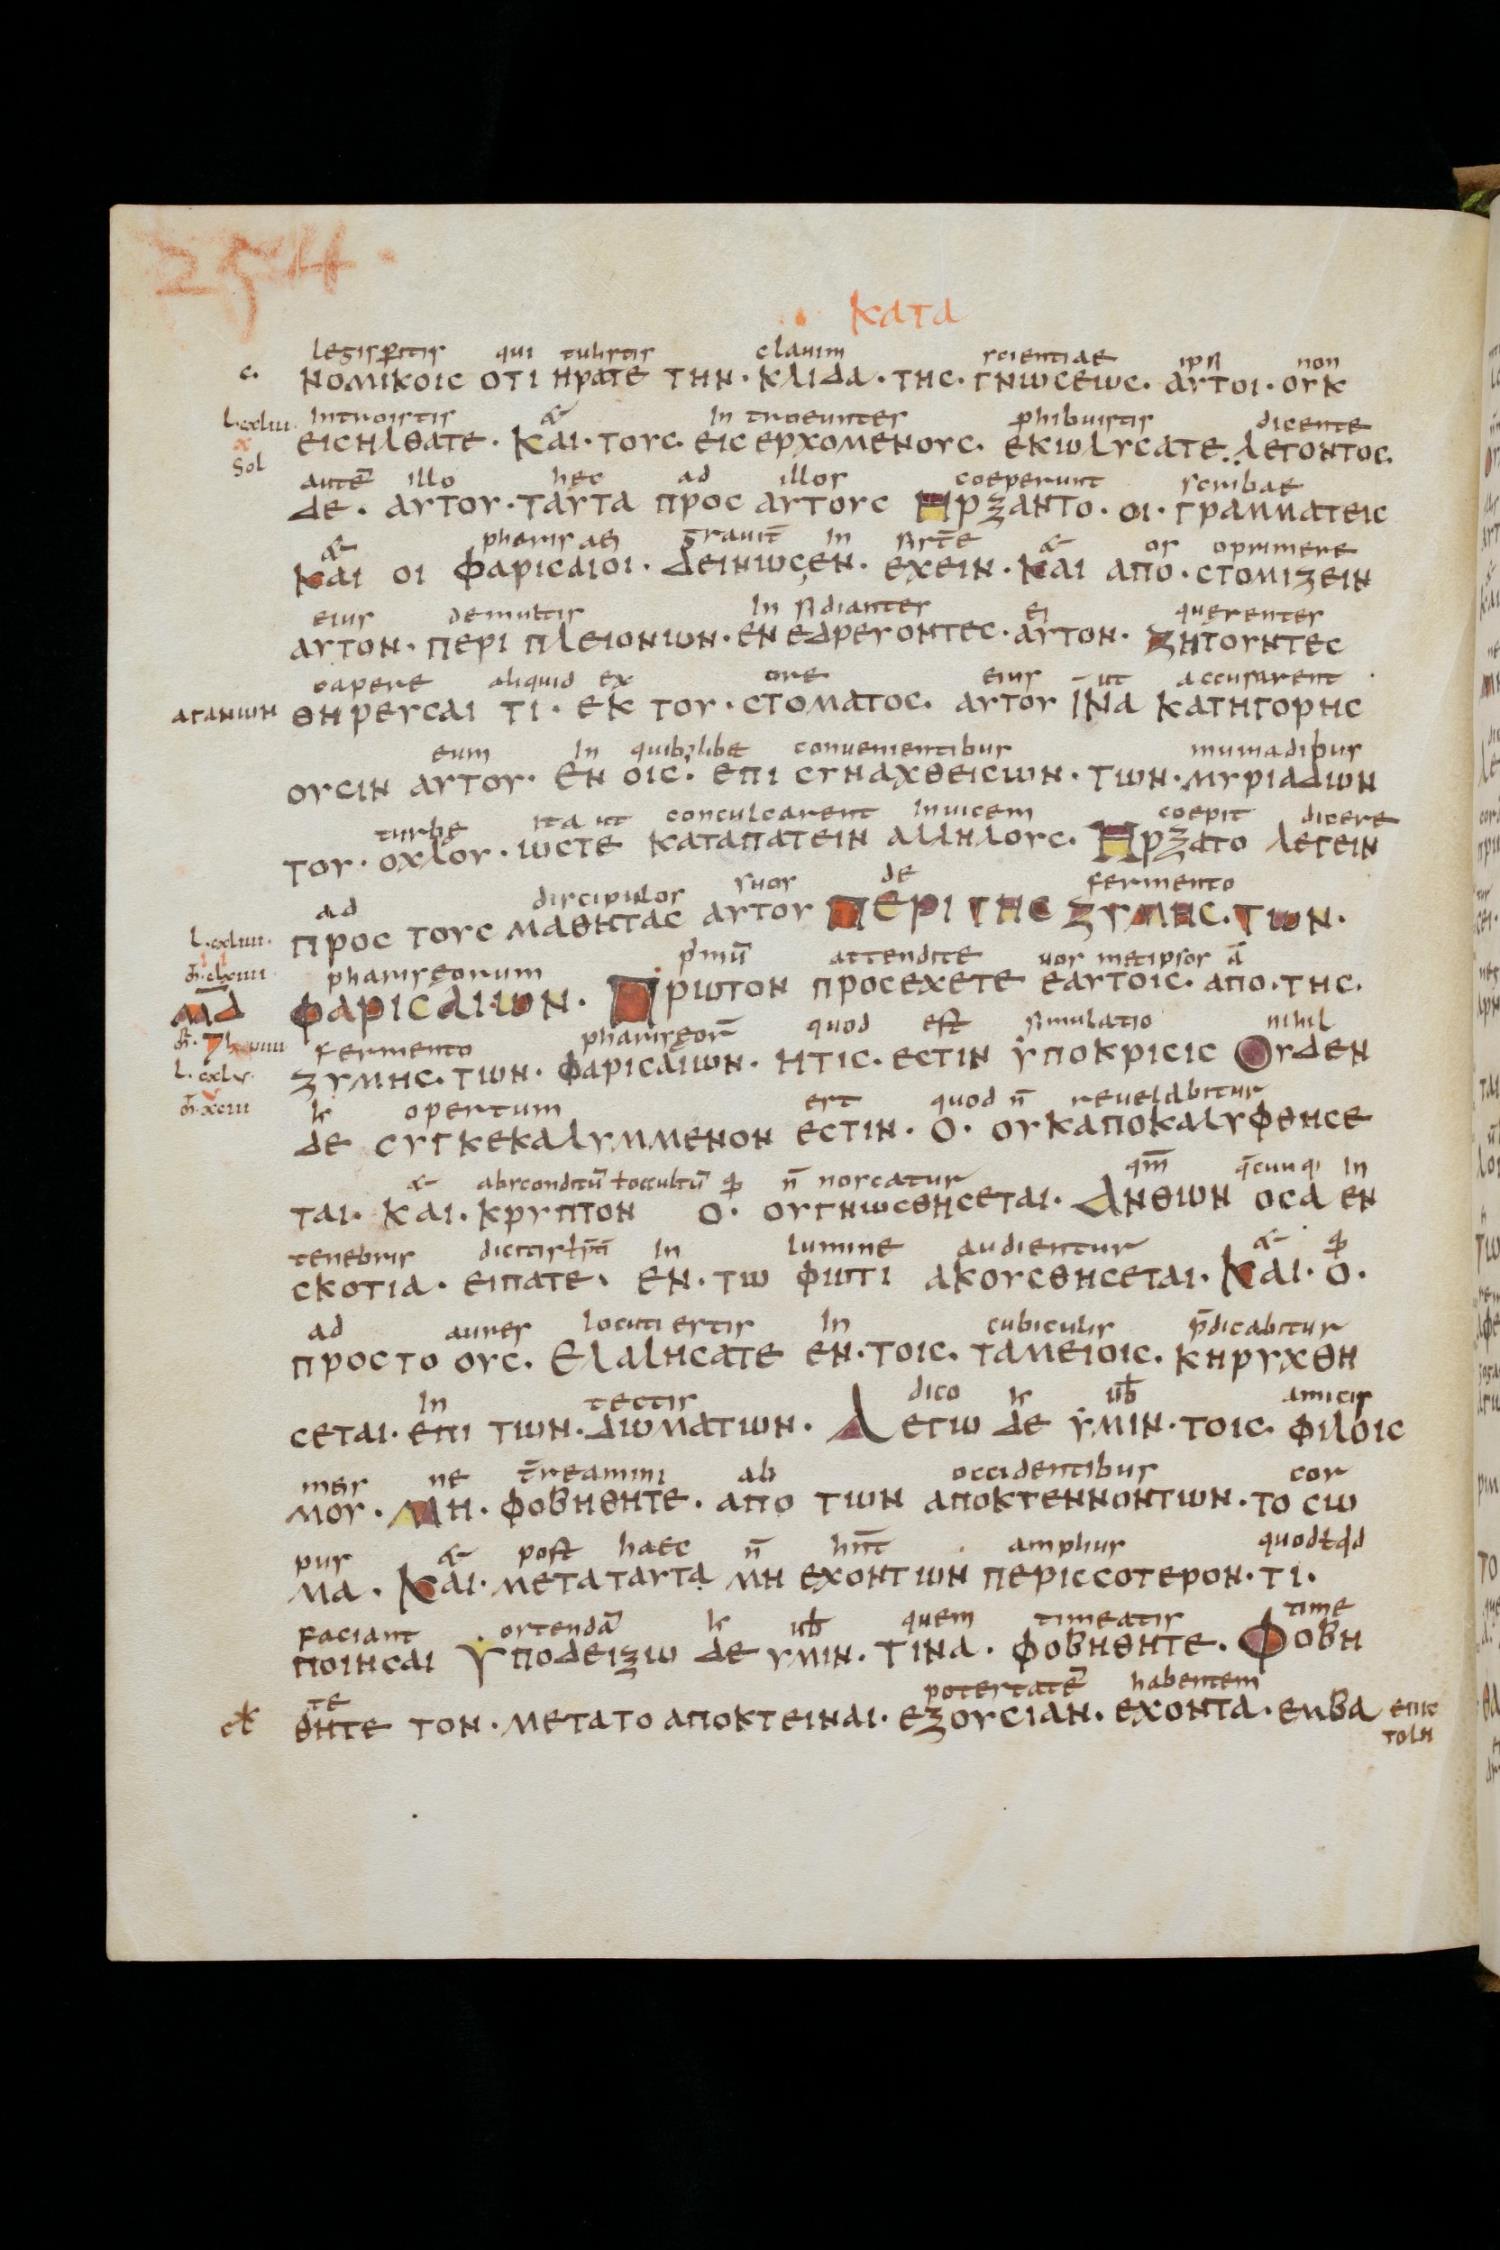 254.
ΚΑΤΑ
legisperitis qui tulistis clavim scientiae ipsi non
c. ΝΟΜΙΚΟΙC ΟΤΙ ΗΡΑΤΕ ΤΗΝ· ΚΛΙΔΑ· ΤΗC· ΓΝΩCΕΩC· ΑΥΤΟΙ· ΟΥΚ
Introistis & In troeuntes phibuistis dicente
ΕΙCΗΛΘΑΤΕ· ΚΑΙ· ΤΟΥC· ΕΙC ΕΡΧΟΜΕΝΟΥC· ΕΚΩΛΥCΑΤΕ· ΛΕΓΟΝΤΟC·
Sol
autē illo hec ad illos coeperunt scribae
ΔΕ· ΑΥΤΟΥ· ΤΑΥΤΑ ΠΡΟC ΑΥΤΟΥC ΗΡΞΑΝΤΟ· ΟΙ· ΓΡΑΜΜΑΤΕΙC
& pharisaei gravit̄ In sist̄e & os oprimere
ΚΑΙ ΟΙ ΦΑΡΙCΑΙΟΙ· ΔΕΙΝΩCΕΝ· ΕΧΕΙΝ· ΚΑΙ ΑΠΟ· CΤΟΜΙΖΕΙΝ
eius demultis In sidiantes ei querentes
ΑΥΤΟΝ· ΠΕΡΙ ΠΛΕΙΟΝΩΝ· ΕΝΕΔΡΕΥΟΝΤΕC· ΑΥΤΟΝ· ΖΗΤΟΥΝΤΕC
capere aliquid ex ore eius ut accusarent
ΑΓΑΝΩΝ ΘΗΡΕΥCΑΙ ΤΙ· ΕΚ ΤΟΥ· CΤΟΜΑΤΟC· ΑΥΤΟΥ ΙΝΑ ΚΑΤΗΓΟΡΗC
eum In quib;libet convenientibus
ΟΥCΙΝ ΑΥΤΟΥ· ΕΝ ΟΙC· ΕΠΙ CΥΝΑΧΘΕΙCΩΝ· ΤΩΝ· ΜΥΡΙΑΔΩΝ
turbe ita ut conculcarent Invicem coepit dicere
ΤΟΥ· ΟΧΛΟΥ· ΩCΤΕ ΚΑΤΑΠΑΤΕΙΝ ΑΛΛΗΛΟΥC· ΗΡΞΑΤΟ ΛΕΓΕΙΝ
ad discipulos suos de fermento
ΠΡΟC ΤΟΥC ΜΑΘΗΤΑC ΑΥΤΟΥ ΠΕΡΙ ΤΗC ΖΥΜΗC· ΤΩΝ·
pharisęorum p̄mū attendite vos metipsos ā
ΦΑΡΙCΑΙΩΝ· ΠΡΩΤΟΝ ΠΡΟCΕΧΕΤΕ ΕΑΥΤΟΙC· ΑΠΟ· ΤΗC·
fermento pharisęor̄ quod est simulatio nihil
ΖΥΜΗC· ΤΩΝ· ΦΑΡΙCΑΙΩΝ· ΗΤΙC· ΕCΤΙΝ ΥΠΟΚΡΙCΙC ΟΥΔΕΝ
opertum est quod n̄ revelabitur
ΔΕ CΥΓΚΕΚΑΛΥΜΜΕΝΟΝ ΕCΤΙΝ· Ο· ΟΥΚΑΠΟΚΑΛΥΦΘΗCΕ
& absconditū ł occultū n̄ noscatur qm̄ In
ΤΑΙ· ΚΑΙ· ΚΡΥΠΤΟΝ Ο· ΟΥΓΝΩCΘΗCΕΤΑΙ· ΑΝΘΩΝ ΟCΑ ΕΝ
tenebris In lumine audientur &
CΚΟΤΙΑ· ΕΙΠΑΤΕ· ΕΝ· ΤΩ ΦΩΤΙ ΑΚΟΥCΘΗCΕΤΑΙ· ΚΑΙ· Ο·
ad aures locuti estis In cubiculis p̄dicabitur
ΠΡΟC ΤΟ ΟΥC· ΕΛΑΛΗCΑΤΕ ΕΝ· ΤΟΙC· ΤΑΜΕΙΟΙC· ΚΗΡΥΧΘΗ
In tectis dico amicis
CΕΤΑΙ· ΕΠΙ ΤΩΝ· ΔΩΜΑΤΩΝ· ΛΕΓΩ ΔΕ ΥΜΙΝ· ΤΟΙC· ΦΙΛΟΙC
meis ne t̄reamini ab occidentibus cor
ΜΟΥ· ΜΗ· ΦΟΒΗΘΗΤΕ· ΑΠΟ ΤΩΝ ΑΠΟΚΤΕΝΝΟΝΤΩΝ· ΤΟ CΩ
pus & post haec n̄ hn̄t amplius quod ł qd
ΜΑ· ΚΑΙ· ΜΕΤΑ ΤΑΥΤΑ ΜΗ ΕΧΟΝΤΩΝ ΠΕΡΙCCΟΤΕΡΟΝ· ΤΙ·
faciant ostendā quem timeatis time
ΠΟΙΗCΑΙ ΥΠΟΔΕΙΞΩ ΔΕ ΥΜΙΝ· ΤΙΝΑ· ΦΟΒΗΘΗΤΕ· ΦΟΒΗ
te potestatē habentem
ΘΗΤΕ ΤΟΝ· ΜΕΤΑ ΤΟ ΑΠΟΚΤΕΙΝΑΙ· ΕΞΟΥCΙΑΝ· ΕΧΟΝΤΑ· ΕΜΒΑ